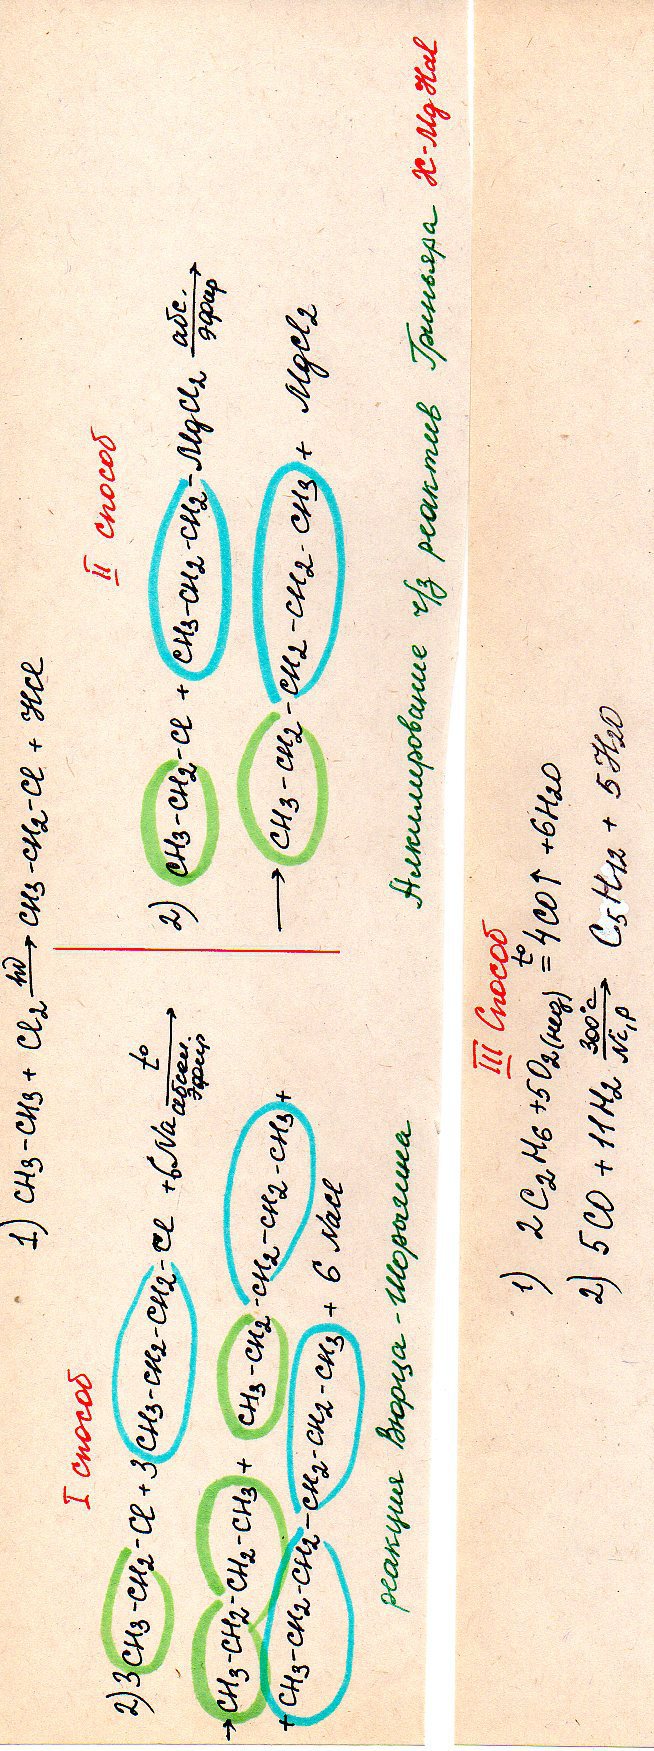 1) CH3-CH3 + Cl2 hν→ CH3-CH2-Cl + HCl
I способ
2) 3CH3-CH2-Cl + 3CH3-CH2-CH2-Cl + 6Na t° абсол. эфир →
→ CH3-CH2-CH2-CH3 + CH3-CH2-CH2-CH2-CH3 +
+ CH3-CH2-CH2-CH2-CH2-CH3 + 6 NaCl
реакция Вюрца-Шорыгина
II способ
2) CH3-CH2-Cl + CH3-CH2-CH2-MgCl2 абс. эфир →
→ CH3-CH2-CH2-CH2-CH3 + MgCl2
Алкилирование ч/з реактив Гриньяра X-MgHal
III Способ
1) 2C2H6 + 5O2(нед) t°= 4CO↑ + 6H2O
2) 5CO + 11H2 300°C Ni, p → C5H12 + 5H2O